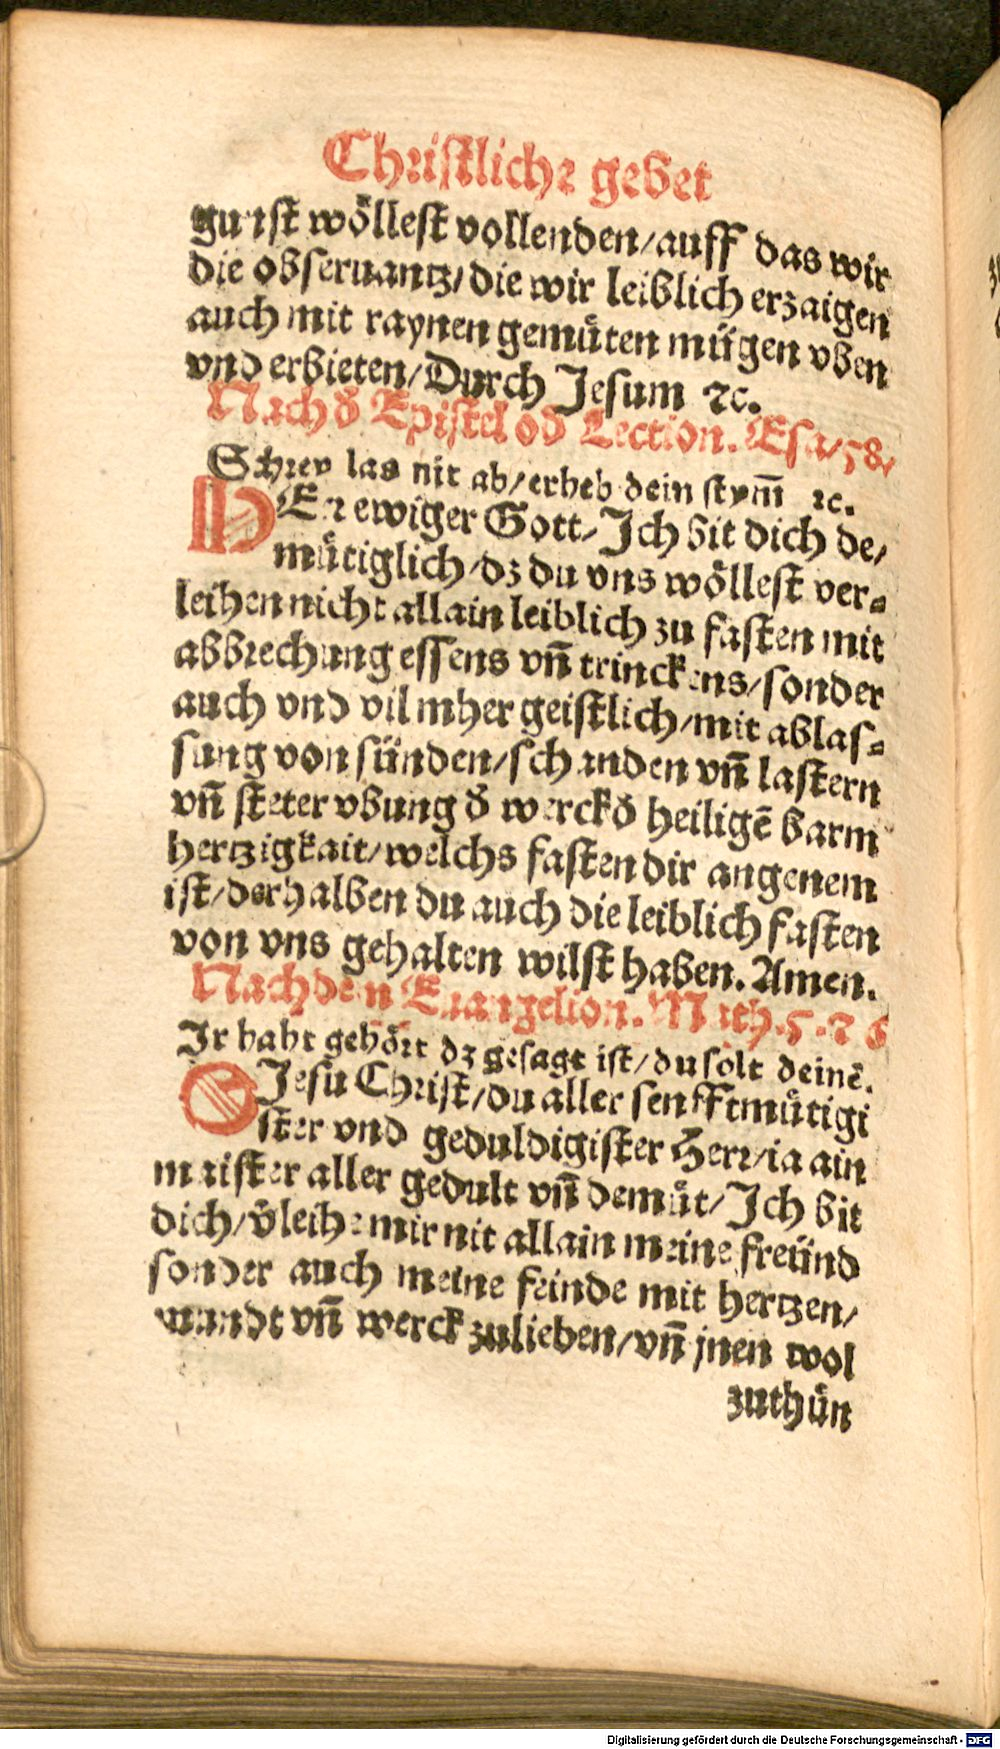 Christliche gebet
gunst wöllest vollenden/auff das wir
die obseruantz/die wir leiblich erzaigen
auch mit raynen gemuͤten muͤgen vben
vnd erbieten/Durch Jesum ⁊c.
Nach d̄ Epistel od̄ Lection. Esa/58/
Schrey las nit ab/erheb dein stym̄ ⁊c.
HErꝛ ewiger Gott/Ich bit dich de/
muͤtiglich/dz du vns woͤllest ver⸗
leihen nicht allain leiblich zu fasten mit
abbꝛechung essens vn̄ trinckens/sonder
auch vnd vil mher geistlich/mit ablas⸗
sung von sünden/schanden vn̄ lastern
vn̄ steter vbung d̄ werck d̄ heiligē barm
hertzigkait/welchs fasten dir angenem
ist/derhalben du auch die leiblich fasten
von vns gehalten wilst haben. Amen.
Nach dem Euangelion. Math. 5. ⁊ 6
Ir habt gehoͤꝛt dz gesagt ist/du solt deinē.
O Jesu Chꝛist/du aller senfftmuͤtigi
ster vnd geduldigister Herꝛ/ia ain
maister aller gedult vn̄ demuͤt/Ich bit
dich/v̄leihe mir nit allain meine freünd
sonder auch meine feinde mit hertzen/
mundt vn̄ werck zulieben/vn̄ jnen wol
zuthuͤn
Digitalisierung gefördert durch die Deutsche Forschungsgemeinschaft - DFG